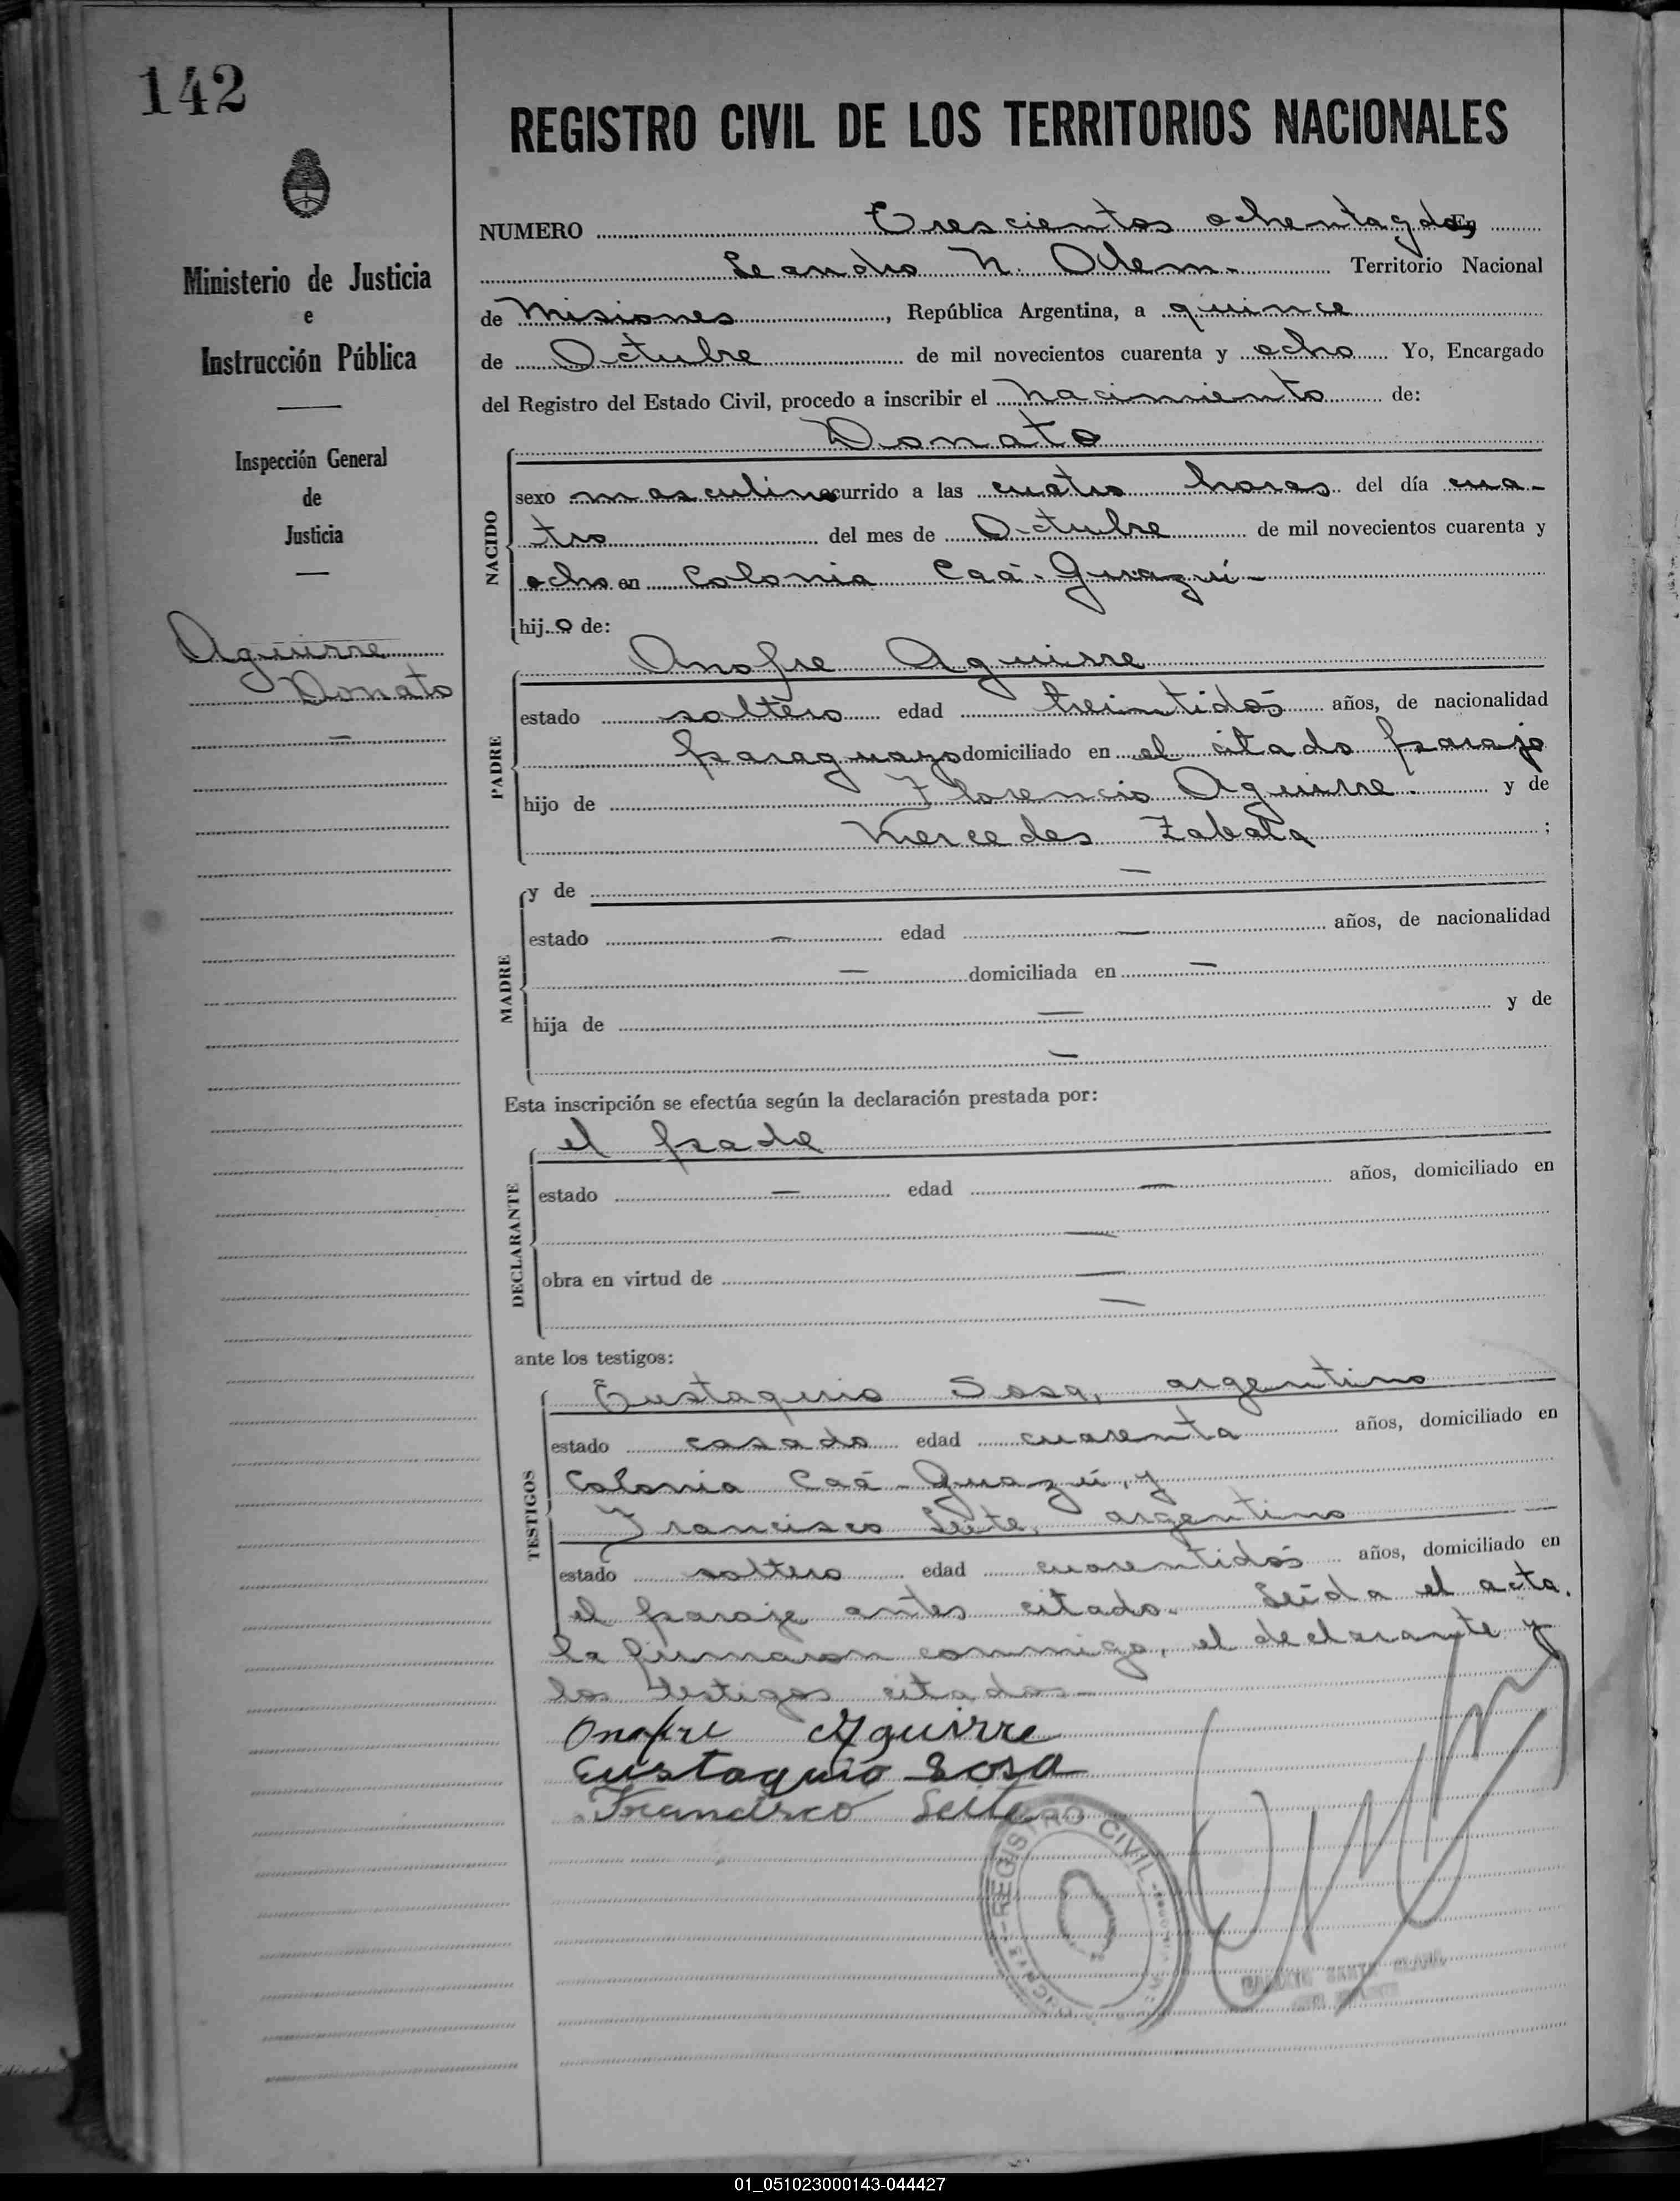 142
REGISTRO CIVIL DE LOS TERRITORIOS NACIONALES
Ministerio de Justicia
e
Instrucción Pública
Inspección General
de
Justicia
Aguirre
Donato
NUMERO Trescientos ochentaydos En
Leandro N. Alem. Territorio Nacional
de Misiones, República Argentina, a quince
de Octubre de mil novecientos cuarenta y ocho Yo, Encargado
del Registro del Estado Civil, procedo a inscribir el nacimiento de:
Donato
NACIDO
sexo masculino ocurrido a las cuatro horas del día cua-
tro del mes de Octubre de mil novecientos cuarenta y
ocho en Colonia Caá-Guazú-
hijo de:
Onofre Aguirre
PADRE
estado soltero edad treintidós años, de nacionalidad
paraguayo domiciliado en el citado paraje
hijo de Florencio Aguirre. y de
Mercedes Zabala ;
MADRE
y de —
estado — edad — años, de nacionalidad
— domiciliada en —
hija de — y de
—
Esta inscripción se efectúa según la declaración prestada por:
el padre
DECLARANTE
estado — edad — años, domiciliado en
—
obra en virtud de —
—
ante los testigos:
TESTIGOS
Eustaquio Sosa, argentino
estado casado edad cuarenta años, domiciliado en
Colonia Caá-Guazú, y
Francisco Leite, argentino
estado soltero edad cuarentidós años, domiciliado en
el paraje antes citado. Leída el acta,
la firmaron conmigo, el declarante y
los testigos citados—
Onofre Aguirre
Eustaquio Sosa
Francisco Leite
REGISTRO CIVIL
01_051023000143-044427